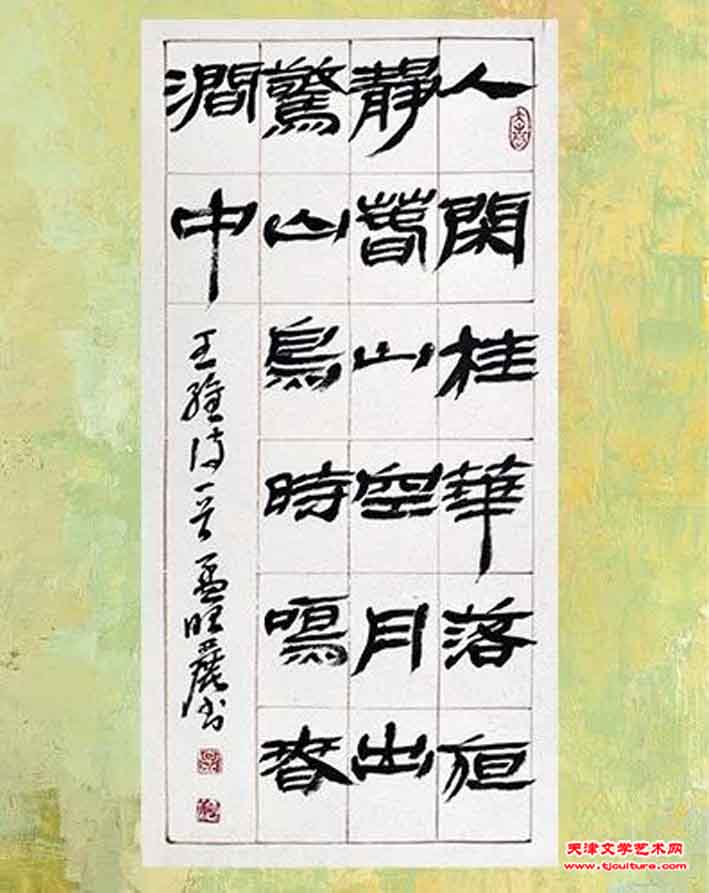 人閑桂華落夜
靜萅山空月出
驚山鳥時鳴春
澗中
王維诗一首 孟 书
天津文学艺术网
www.tjculture.com